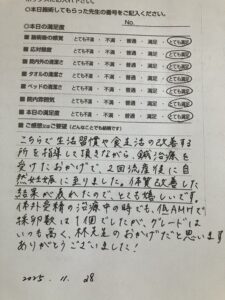 ボックスにお入れ下さい。
◎本日施術してもらった先生の番号をご記入ください。
No.
◎本日の満足度
■ 施術後の感覚 とても不満 ・ 不満 ・ 普通 ・ 満足 ・ とても満足
■ 応対態度 とても不満 ・ 不満 ・ 普通 ・ 満足 ・ とても満足
■ 院内外の清潔さ とても不満 ・ 不満 ・ 普通 ・ 満足 ・ とても満足
■ タオルの清潔さ とても不満 ・ 不満 ・ 普通 ・ 満足 ・ とても満足
■ ベッドの清潔さ とても不満 ・ 不満 ・ 普通 ・ 満足 ・ とても満足
■ 院内雰囲気 とても不満 ・ 不満 ・ 普通 ・ 満足 ・ とても満足
■ 本日の満足度 とても不満 ・ 不満 ・ 普通 ・ 満足 ・ とても満足
■ ご感想ご要望 (どんなことでも結構です)
こちらで生活習慣や食生活の改善する
所を指導して頂きながら、鍼治療を
受けたおかげで、2回流産後に自
然妊娠に至りました。体質改善した
結果が表れたので、とても嬉しいです。
体外受精の治療中の時でも、低AMHで
採卵数は1個でしたが、グレードは
いつも高く、林先生のおかげだと思います
ありがとうございました!
2025. 11. 28